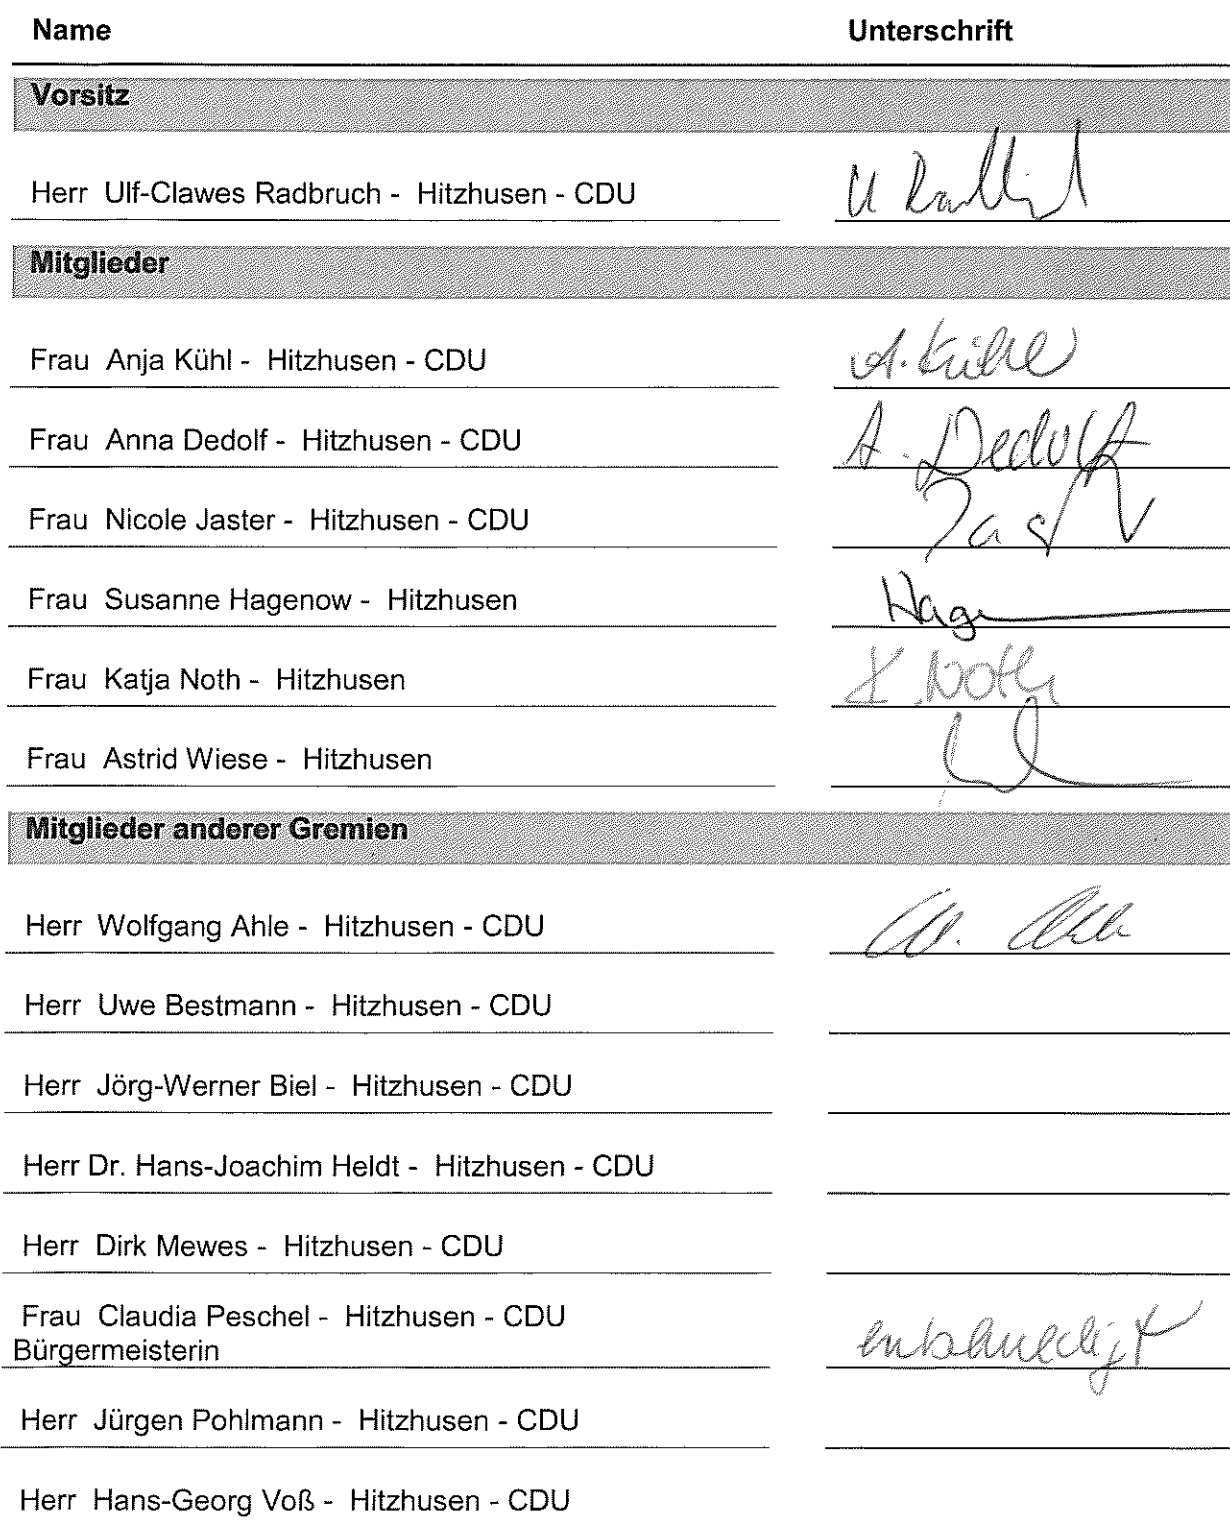 Name Unterschrift
Vorsitz
Herr Ulf-Clawes Radbruch - Hitzhusen - CDU U Radbruch
Mitglieder
Frau Anja Kühl - Hitzhusen - CDU A. Kühl
Frau Anna Dedolf - Hitzhusen - CDU A. Dedolf
Frau Nicole Jaster - Hitzhusen - CDU
Frau Susanne Hagenow - Hitzhusen Hag
Frau Katja Noth - Hitzhusen K. Noth
Frau Astrid Wiese - Hitzhusen
Mitglieder anderer Gremien
Herr Wolfgang Ahle - Hitzhusen - CDU W. Ahle
Herr Uwe Bestmann - Hitzhusen - CDU
Herr Jörg-Werner Biel - Hitzhusen - CDU
Herr Dr. Hans-Joachim Heldt - Hitzhusen - CDU
Herr Dirk Mewes - Hitzhusen - CDU
Frau Claudia Peschel - Hitzhusen - CDU entschuldigt
Bürgermeisterin
Herr Jürgen Pohlmann - Hitzhusen - CDU
Herr Hans-Georg Voß - Hitzhusen - CDU